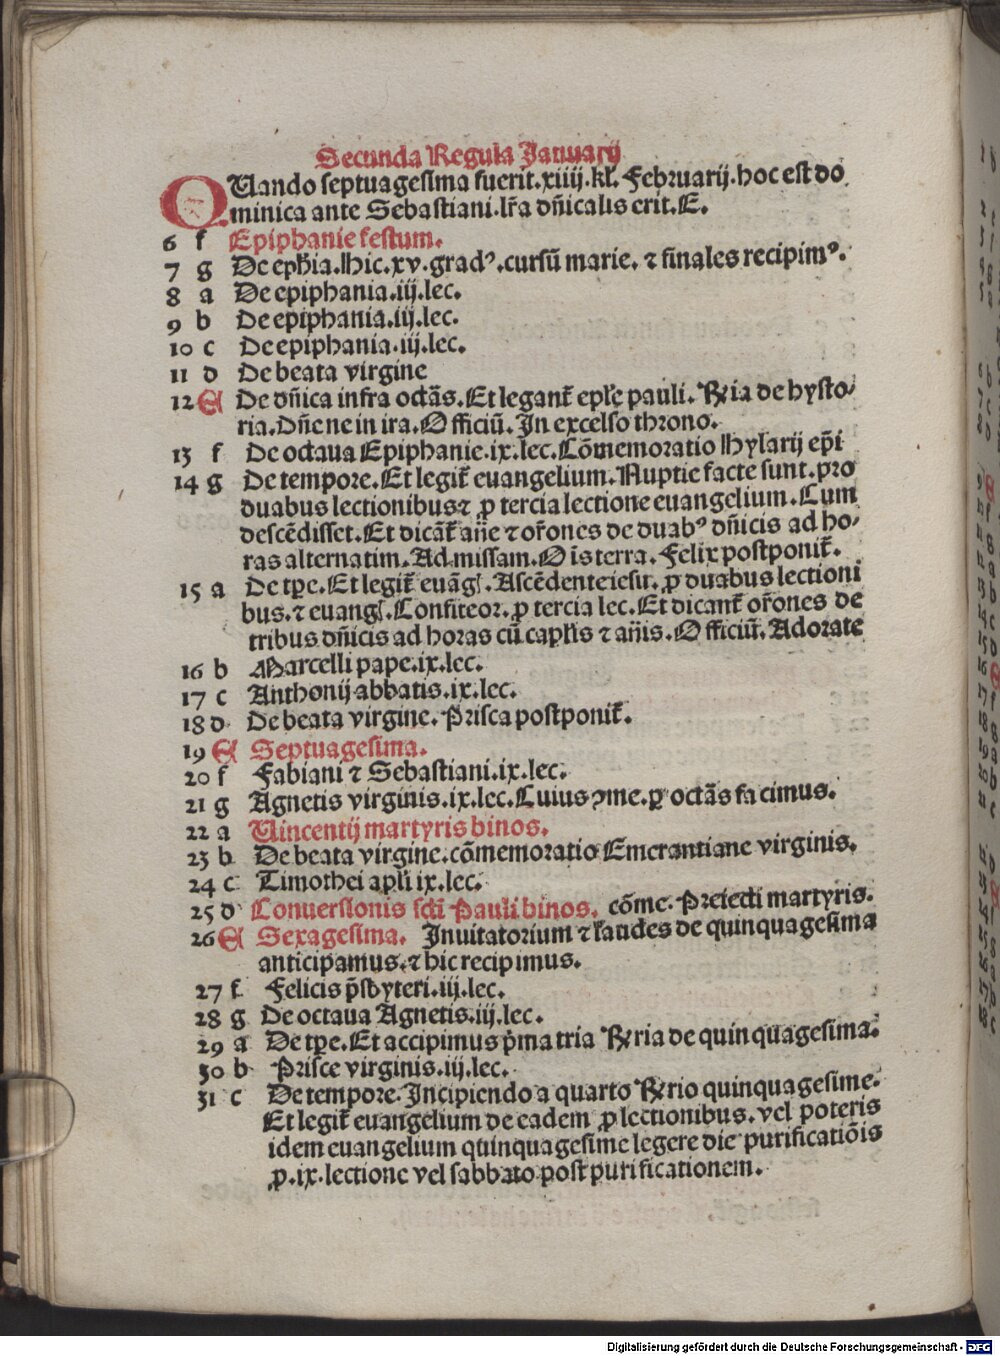 Secunda Regula Januarij
QUando septuagesima fuerit.xiiij.kl. Februarij.hoc est do
minica ante Sebastiani.lr̃a dñicalis erit.E.
6 f Epiphanie festum.
7 g De eph̄ia.Hic.xv.gradꝰ.cursũ marie. ⁊ finales recipimꝰ.
8 a De epiphania.iij.lec.
9 b De epiphania.iij.lec.
10 c De epiphania.iij.lec.
11 d De beata virgine
12 E De dñica infra octãs.Et legant̃ epl̃e pauli. ꝶia de hysto/
ria.Dñe ne in ira.Officiũ.In excelso throno.
13 f De octaua Epiphanie.ix.lec.Cõmemoratio Hylarij ep̃i
14 g De tempore.Et legit̃ euangelium.Nuptie facte sunt.pro
duabus lectionibus⁊ ꝓ tercia lectione euangelium.Cum
descẽdisset.Et dicãt̃ añe ⁊ or̃ones de duabꝰ dñicis ad ho/
ras alternatim.Ad missam.Oĩs terra. Felix postponit̃.
15 a De tp̃e.Et legit̃ euãgl̃.Ascẽdente iesu.ꝓ duabus lectioni
bus.⁊ euangl̃.Confiteor.ꝓ tercia lec.Et dicant̃ or̃ones de
tribus dñicis ad horas cũ capl̃is ⁊ añis.Officiũ.Adorate
16 b Marcelli pape.ix.lec.
17 c Anthonij abbatis.ix.lec.
18 d De beata virgine. Prisca postponit̃.
19 E Septuagesima.
20 f Fabiani ⁊ Sebastiani.ix.lec.
21 g Agnetis virginis.ix.lec.Cuius ꝯme.ꝑ octãs facimus.
22 a Vincentij martyris binos.
23 b De beata virgine.cõmemoratio Emerantiane virginis.
24 c Timothei apl̃i ix.lec.
25 d Conuersionis scti Pauli binos. cõme. Preiecti martyris.
26 E Sexagesima. Inuitatorium ⁊ laudes de quinquagesima
anticipamus.⁊ hic recipimus.
27 f Felicis p̃sbyteri.iij.lec.
28 g De octaua Agnetis.iij.lec.
29 a De tp̃e.Et accipimus p̃ma tria ꝶria de quinquagesima.
30 b Prisce virginis.iij.lec.
31 c De tempore.Incipiendo a quarto ꝶrio quinquagesime.
Et legit̃ euangelium de eadem ꝓ lectionibus.vel poteris
idem euangelium quinquagesime legere die purificatiõis
ꝓ.ix.lectione vel sabbato post purificationem.
Digitalisierung gefördert durch die Deutsche Forschungsgemeinschaft - DFG